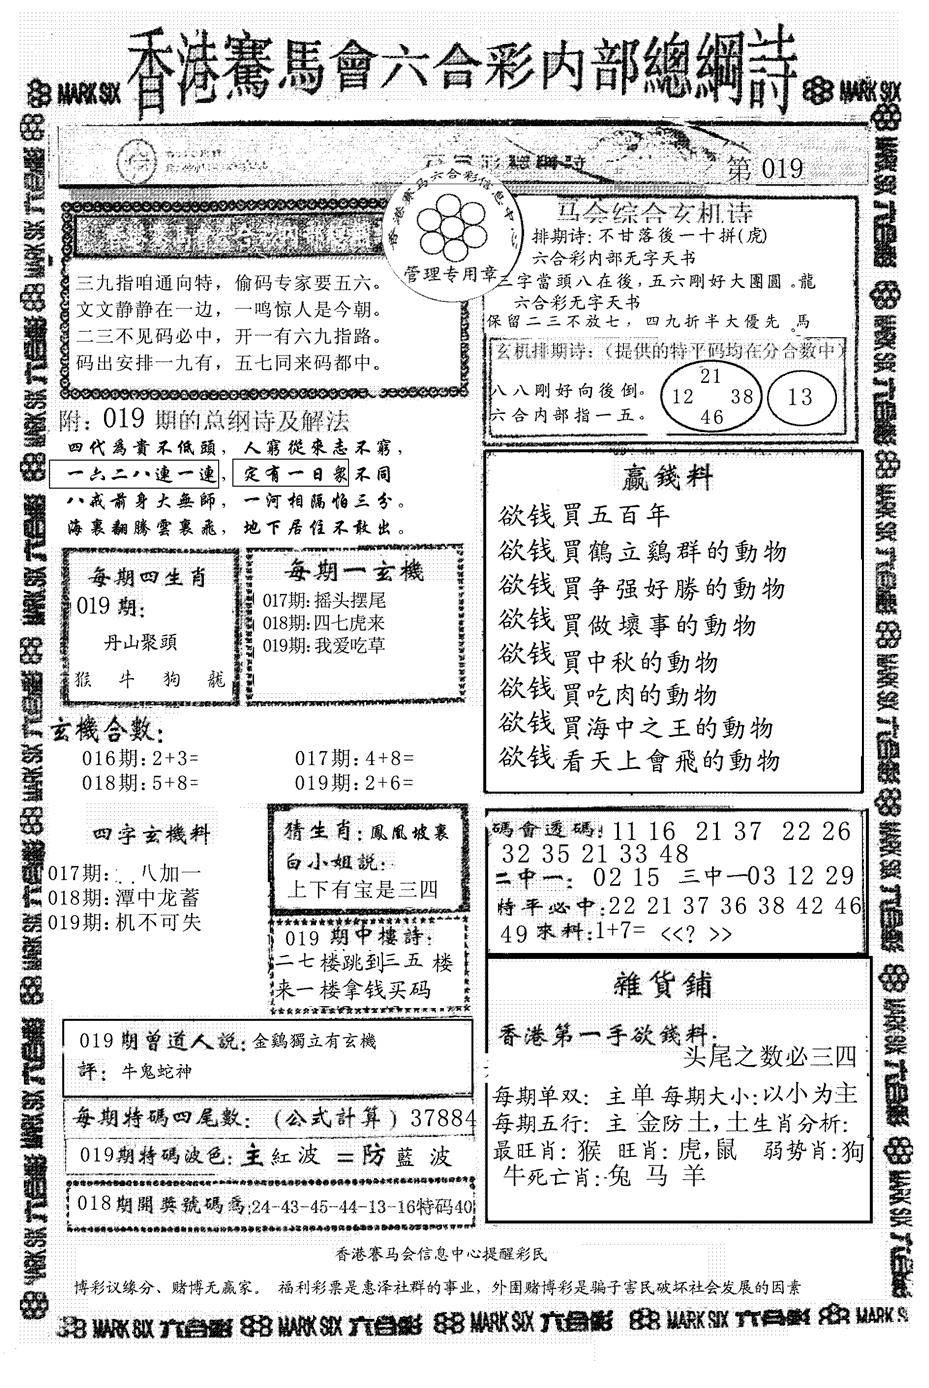 香港賽馬會六合彩内部總綱詩
MARK SIX
MARK SIX
第 019
香港赛马六合彩信息中心
管理专用章
三九指咱通向特，偷码专家要五六。
文文静静在一边，一鸣惊人是今朝。
二三不见码必中，开一有六九指路。
码出安排一九有，五七同来码都中。
马会综合玄机诗
排期诗:不甘落後一十拼(虎)
六合彩内部无字天书
三字當頭八在後,五六剛好大團圓。龍
六合彩无字天书
保留二三不放七，四九折半大優先。馬
玄机排期诗:（提供的特平码均在分合数中）
八八剛好向後倒。
六合内部指一五。
21
12 38
46
13
附: 019 期的总纲诗及解法
四代為貴不低頭，人窮從來志不窮，
一六二八連一連，定有一日眾不同
八戒前身大無師，一河相隔怕三分。
海裏翻騰雲裏飛，地下居住不敢出。
每期四生肖
019期:
丹山聚頭
猴 牛 狗 龍
每期一玄機
017期:摇头摆尾
018期:四七虎来
019期:我爱吃草
赢錢料
欲钱買五百年
欲钱買鶴立鷄群的動物
欲钱買争强好勝的動物
欲钱買做壞事的動物
欲钱買中秋的動物
欲钱買吃肉的動物
欲钱買海中之王的動物
欲钱看天上會飛的動物
玄機合數:
016期:2+3= 017期:4+8=
018期:5+8= 019期:2+6=
四字玄機料
017期: 八加一
018期:潭中龙蓄
019期:机不可失
猜生肖:鳳凰坡裏
白小姐説:
上下有宝是三四
019 期中樓詩:
二七楼跳到三五 楼
来一楼拿钱买码
碼會透碼: 11 16 21 37 22 26
32 35 21 33 48
二中一: 02 15 三中一03 12 29
特平必中:22 21 37 36 38 42 46
49 來料:1+7= <<? >>
雜貨鋪
香港第一手欲錢料:
头尾之数必三四
每期单双: 主单 每期大小:以小为主
每期五行: 主 金防土,土生肖分析:
最旺肖: 猴 旺肖: 虎,鼠 弱势肖:狗
牛死亡肖:兔 马 羊
019期曾道人説:金鷄獨立有玄機
評: 牛鬼蛇神
每期特碼四尾數: (公式計算) 37884
019期特碼波色:主紅波 =防藍 波
018期開獎號碼為:24-43-45-44-13-16特码40
香港赛马会信息中心提醒彩民
博彩议缘分、赌博无赢家。 福利彩票是惠泽社群的事业，外围赌博彩是骗子害民破坏社会发展的因素
MARK SIX 六合彩 MARK SIX 六合彩 MARK SIX 六合彩 MARK SIX 六合彩 MARK SIX